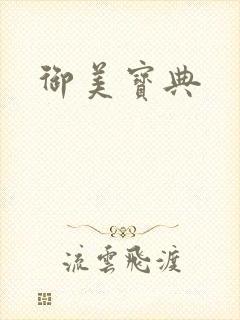 御美寶典
流雲飛渡